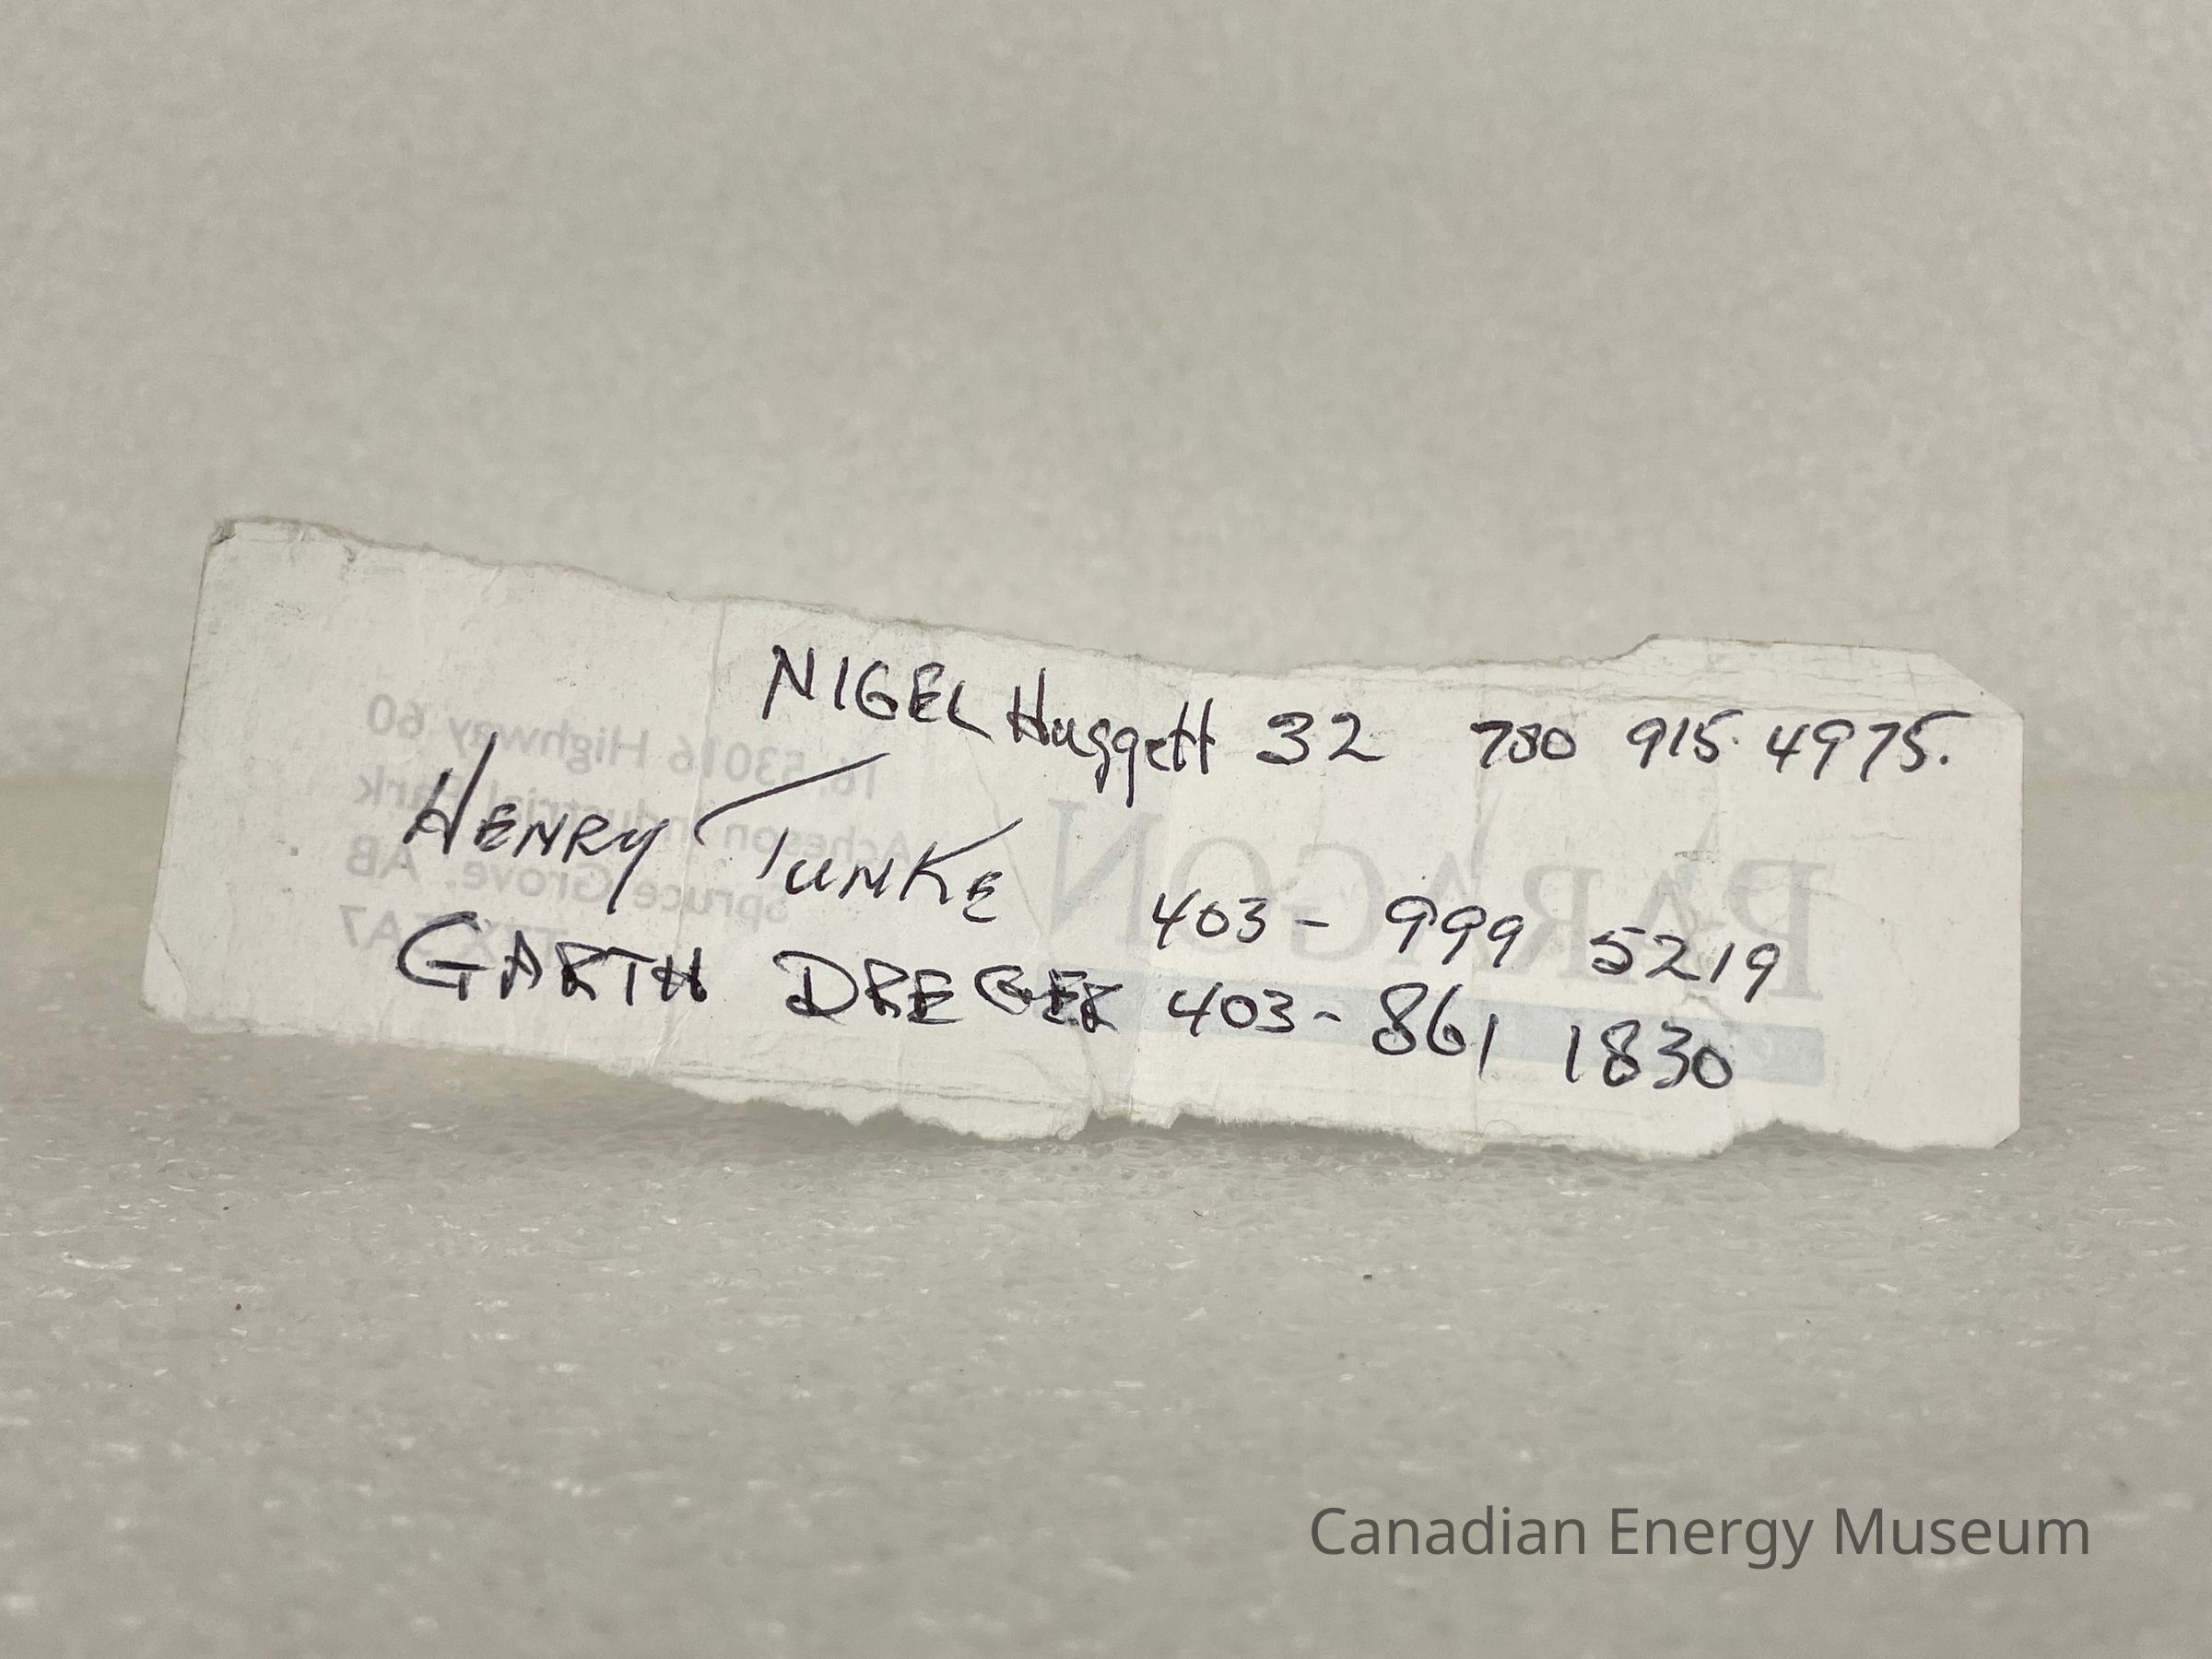 NIGEL Huggett 32 780 915 4975.
HENRY TUNKE 403 - 999 5219
GARTH DREGER 403 - 861 1830
53016 Highway 60
Acheson Industrial Park
Spruce Grove, AB
PARAGON
Canadian Energy Museum